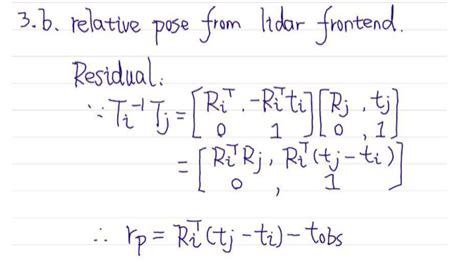 3.b. relative pose from lidar frontend.
Residual:
∵ Tᵢ⁻¹Tⱼ = [Rᵢᵀ, -Rᵢᵀtᵢ; 0 1][Rⱼ, tⱼ; 0, 1]
= [RᵢᵀRⱼ, Rᵢᵀ(tⱼ-tᵢ); 0, 1]
∴ rp = Rᵢᵀ(tⱼ-tᵢ) - tobs